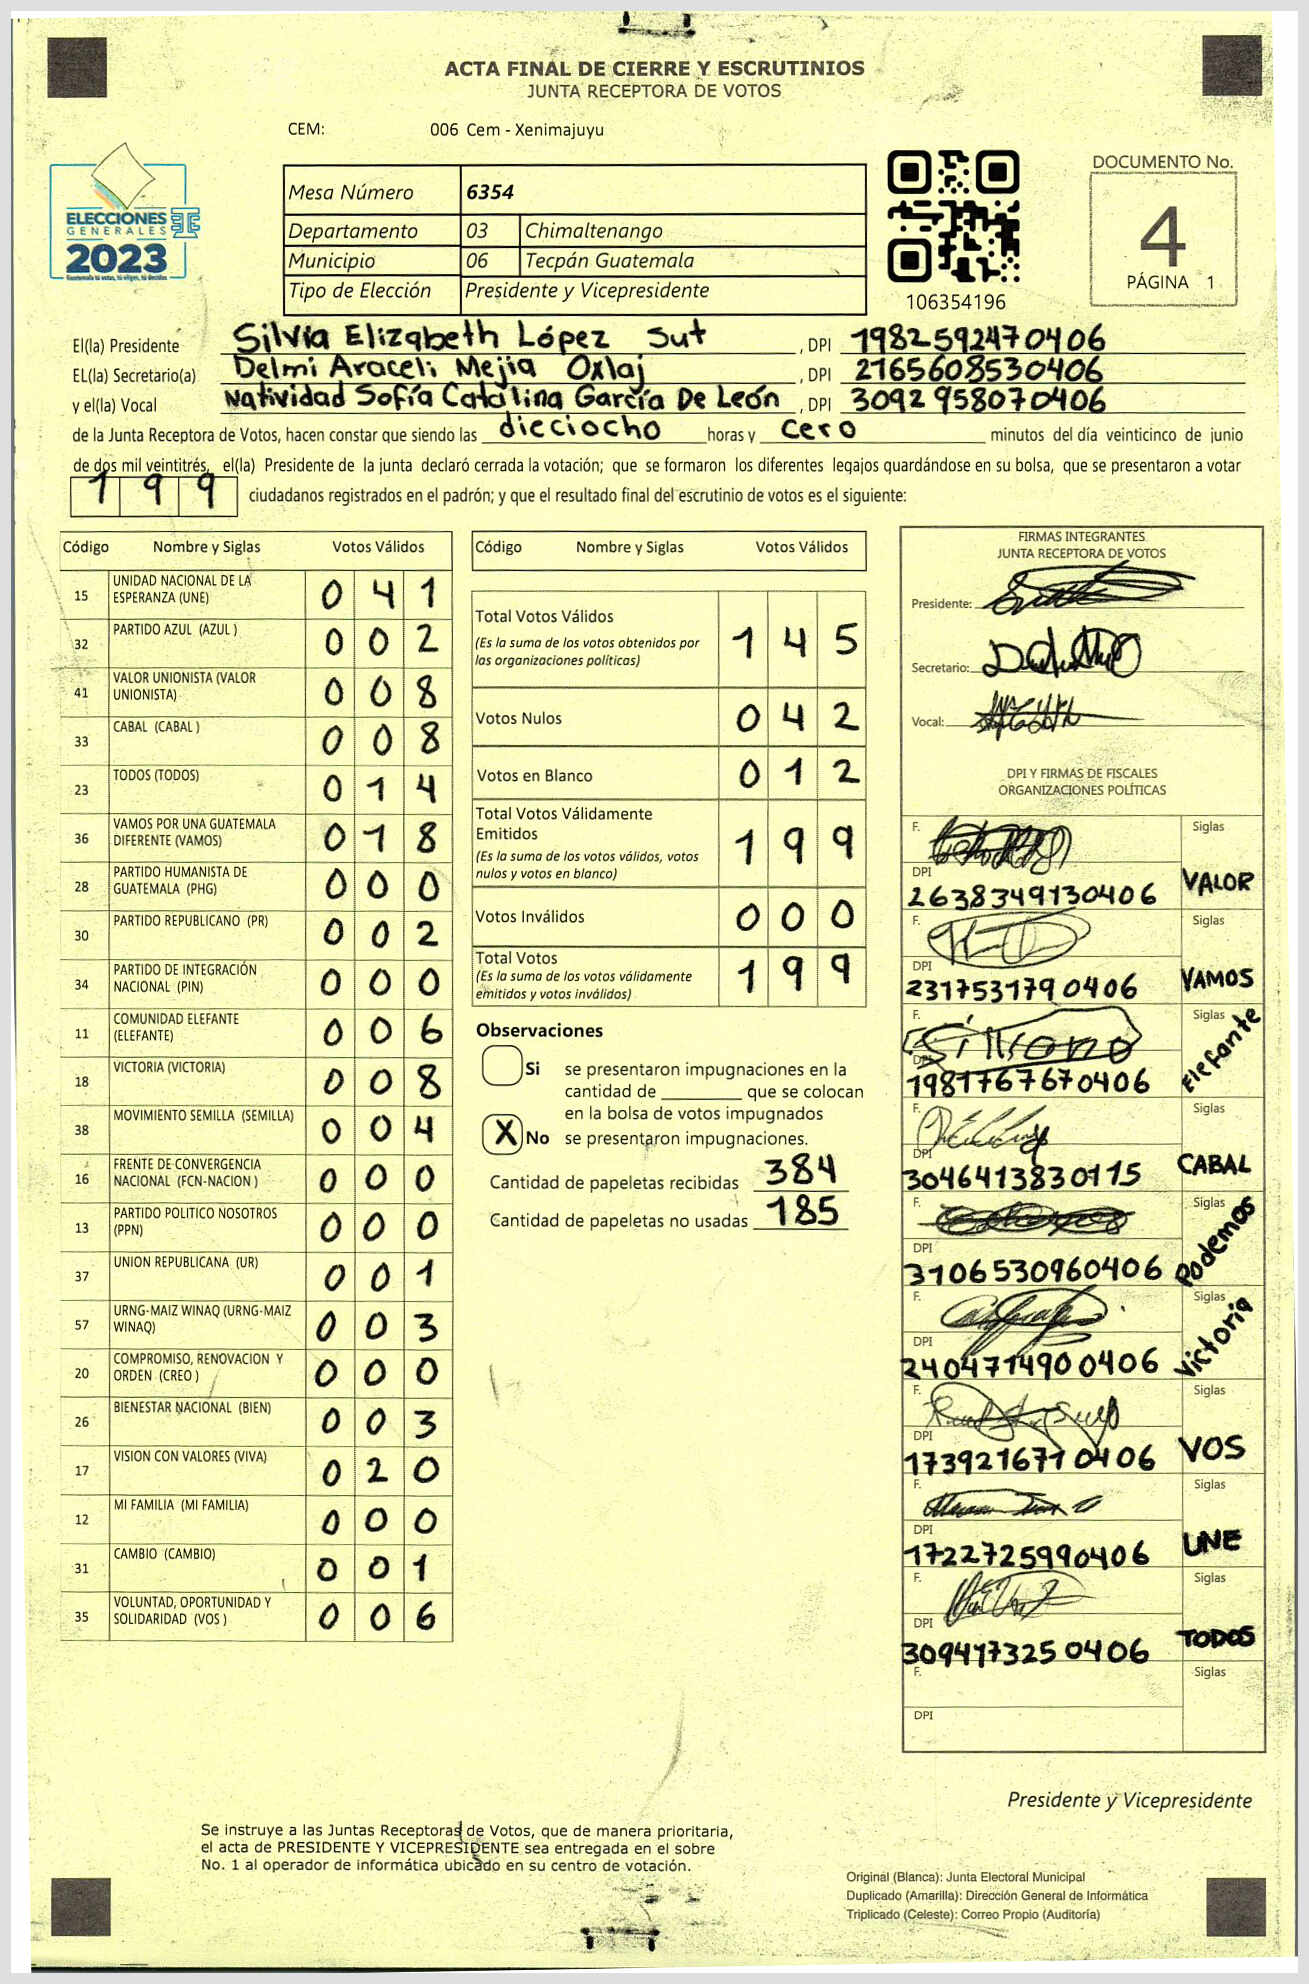 ACTA FINAL DE CIERRE Y ESCRUTINIOS
JUNTA RECEPTORA DE VOTOS
CEM: 006 Cem - Xenimajuyu
ELECCIONES
GENERALES
2023
Guatemala tú votas, tú eliges, tú decides
Mesa Número 6354
Departamento 03 Chimaltenango
Municipio 06 Tecpán Guatemala
Tipo de Elección Presidente y Vicepresidente
106354196
DOCUMENTO No.
4
PÁGINA 1
El(la) Presidente Silvia Elizabeth López Sut , DPI 1982592470406
EL(la) Secretario(a) Delmi Araceli Mejia Oxlaj , DPI 2165608530406
y el(la) Vocal Natividad Sofía Catalina García De León , DPI 3092958070406
de la Junta Receptora de Votos, hacen constar que siendo las dieciocho horas y cero minutos del día veinticinco de junio
de dos mil veintitrés, el(la) Presidente de la junta declaró cerrada la votación; que se formaron los diferentes legajos guardándose en su bolsa, que se presentaron a votar
199 ciudadanos registrados en el padrón; y que el resultado final del escrutinio de votos es el siguiente:
Código Nombre y Siglas Votos Válidos
15 UNIDAD NACIONAL DE LA ESPERANZA (UNE) 0 4 1
32 PARTIDO AZUL (AZUL ) 0 0 2
41 VALOR UNIONISTA (VALOR UNIONISTA) 0 0 8
33 CABAL (CABAL ) 0 0 8
23 TODOS (TODOS) 0 1 4
36 VAMOS POR UNA GUATEMALA DIFERENTE (VAMOS) 0 1 8
28 PARTIDO HUMANISTA DE GUATEMALA (PHG) 0 0 0
30 PARTIDO REPUBLICANO (PR) 0 0 2
34 PARTIDO DE INTEGRACIÓN NACIONAL (PIN) 0 0 0
11 COMUNIDAD ELEFANTE (ELEFANTE) 0 0 6
18 VICTORIA (VICTORIA) 0 0 8
38 MOVIMIENTO SEMILLA (SEMILLA) 0 0 4
16 FRENTE DE CONVERGENCIA NACIONAL (FCN-NACION ) 0 0 0
13 PARTIDO POLITICO NOSOTROS (PPN) 0 0 0
37 UNION REPUBLICANA (UR) 0 0 1
57 URNG-MAIZ WINAQ (URNG-MAIZ WINAQ) 0 0 3
20 COMPROMISO, RENOVACION Y ORDEN (CREO ) 0 0 0
26 BIENESTAR NACIONAL (BIEN) 0 0 3
17 VISION CON VALORES (VIVA) 0 2 0
12 MI FAMILIA (MI FAMILIA) 0 0 0
31 CAMBIO (CAMBIO) 0 0 1
35 VOLUNTAD, OPORTUNIDAD Y SOLIDARIDAD (VOS ) 0 0 6
Código Nombre y Siglas Votos Válidos
Total Votos Válidos 1 4 5
(Es la suma de los votos obtenidos por
las organizaciones políticas)
Votos Nulos 0 4 2
Votos en Blanco 0 1 2
Total Votos Válidamente
Emitidos 1 9 9
(Es la suma de los votos válidos, votos
nulos y votos en blanco)
Votos Inválidos 0 0 0
Total Votos 1 9 9
(Es la suma de los votos válidamente
emitidos y votos inválidos)
Observaciones
Si se presentaron impugnaciones en la
cantidad de que se colocan
en la bolsa de votos impugnados
X No se presentaron impugnaciones.
Cantidad de papeletas recibidas 384
Cantidad de papeletas no usadas 185
FIRMAS INTEGRANTES
JUNTA RECEPTORA DE VOTOS
Presidente:
Secretario:
Vocal:
DPI Y FIRMAS DE FISCALES
ORGANIZACIONES POLÍTICAS
F. Siglas
DPI
2638349130406 VALOR
F. Siglas
DPI
2317531790406 VAMOS
F. Siglas
DPI
1981767670406 Elefante
F. Siglas
DPI
3046413830115 CABAL
F. Siglas
DPI
3106530960406 Podemos
F. Siglas
DPI
2404714900406 Victoria
F. Siglas
DPI
1739216710406 VOS
F. Siglas
DPI
1722725990406 UNE
F. Siglas
DPI
3094173250406 TODOS
F. Siglas
DPI
Presidente y Vicepresidente
Se instruye a las Juntas Receptoras de Votos, que de manera prioritaria,
el acta de PRESIDENTE Y VICEPRESIDENTE sea entregada en el sobre
No. 1 al operador de informática ubicado en su centro de votación.
Original (Blanca): Junta Electoral Municipal
Duplicado (Amarilla): Dirección General de Informática
Triplicado (Celeste): Correo Propio (Auditoría)